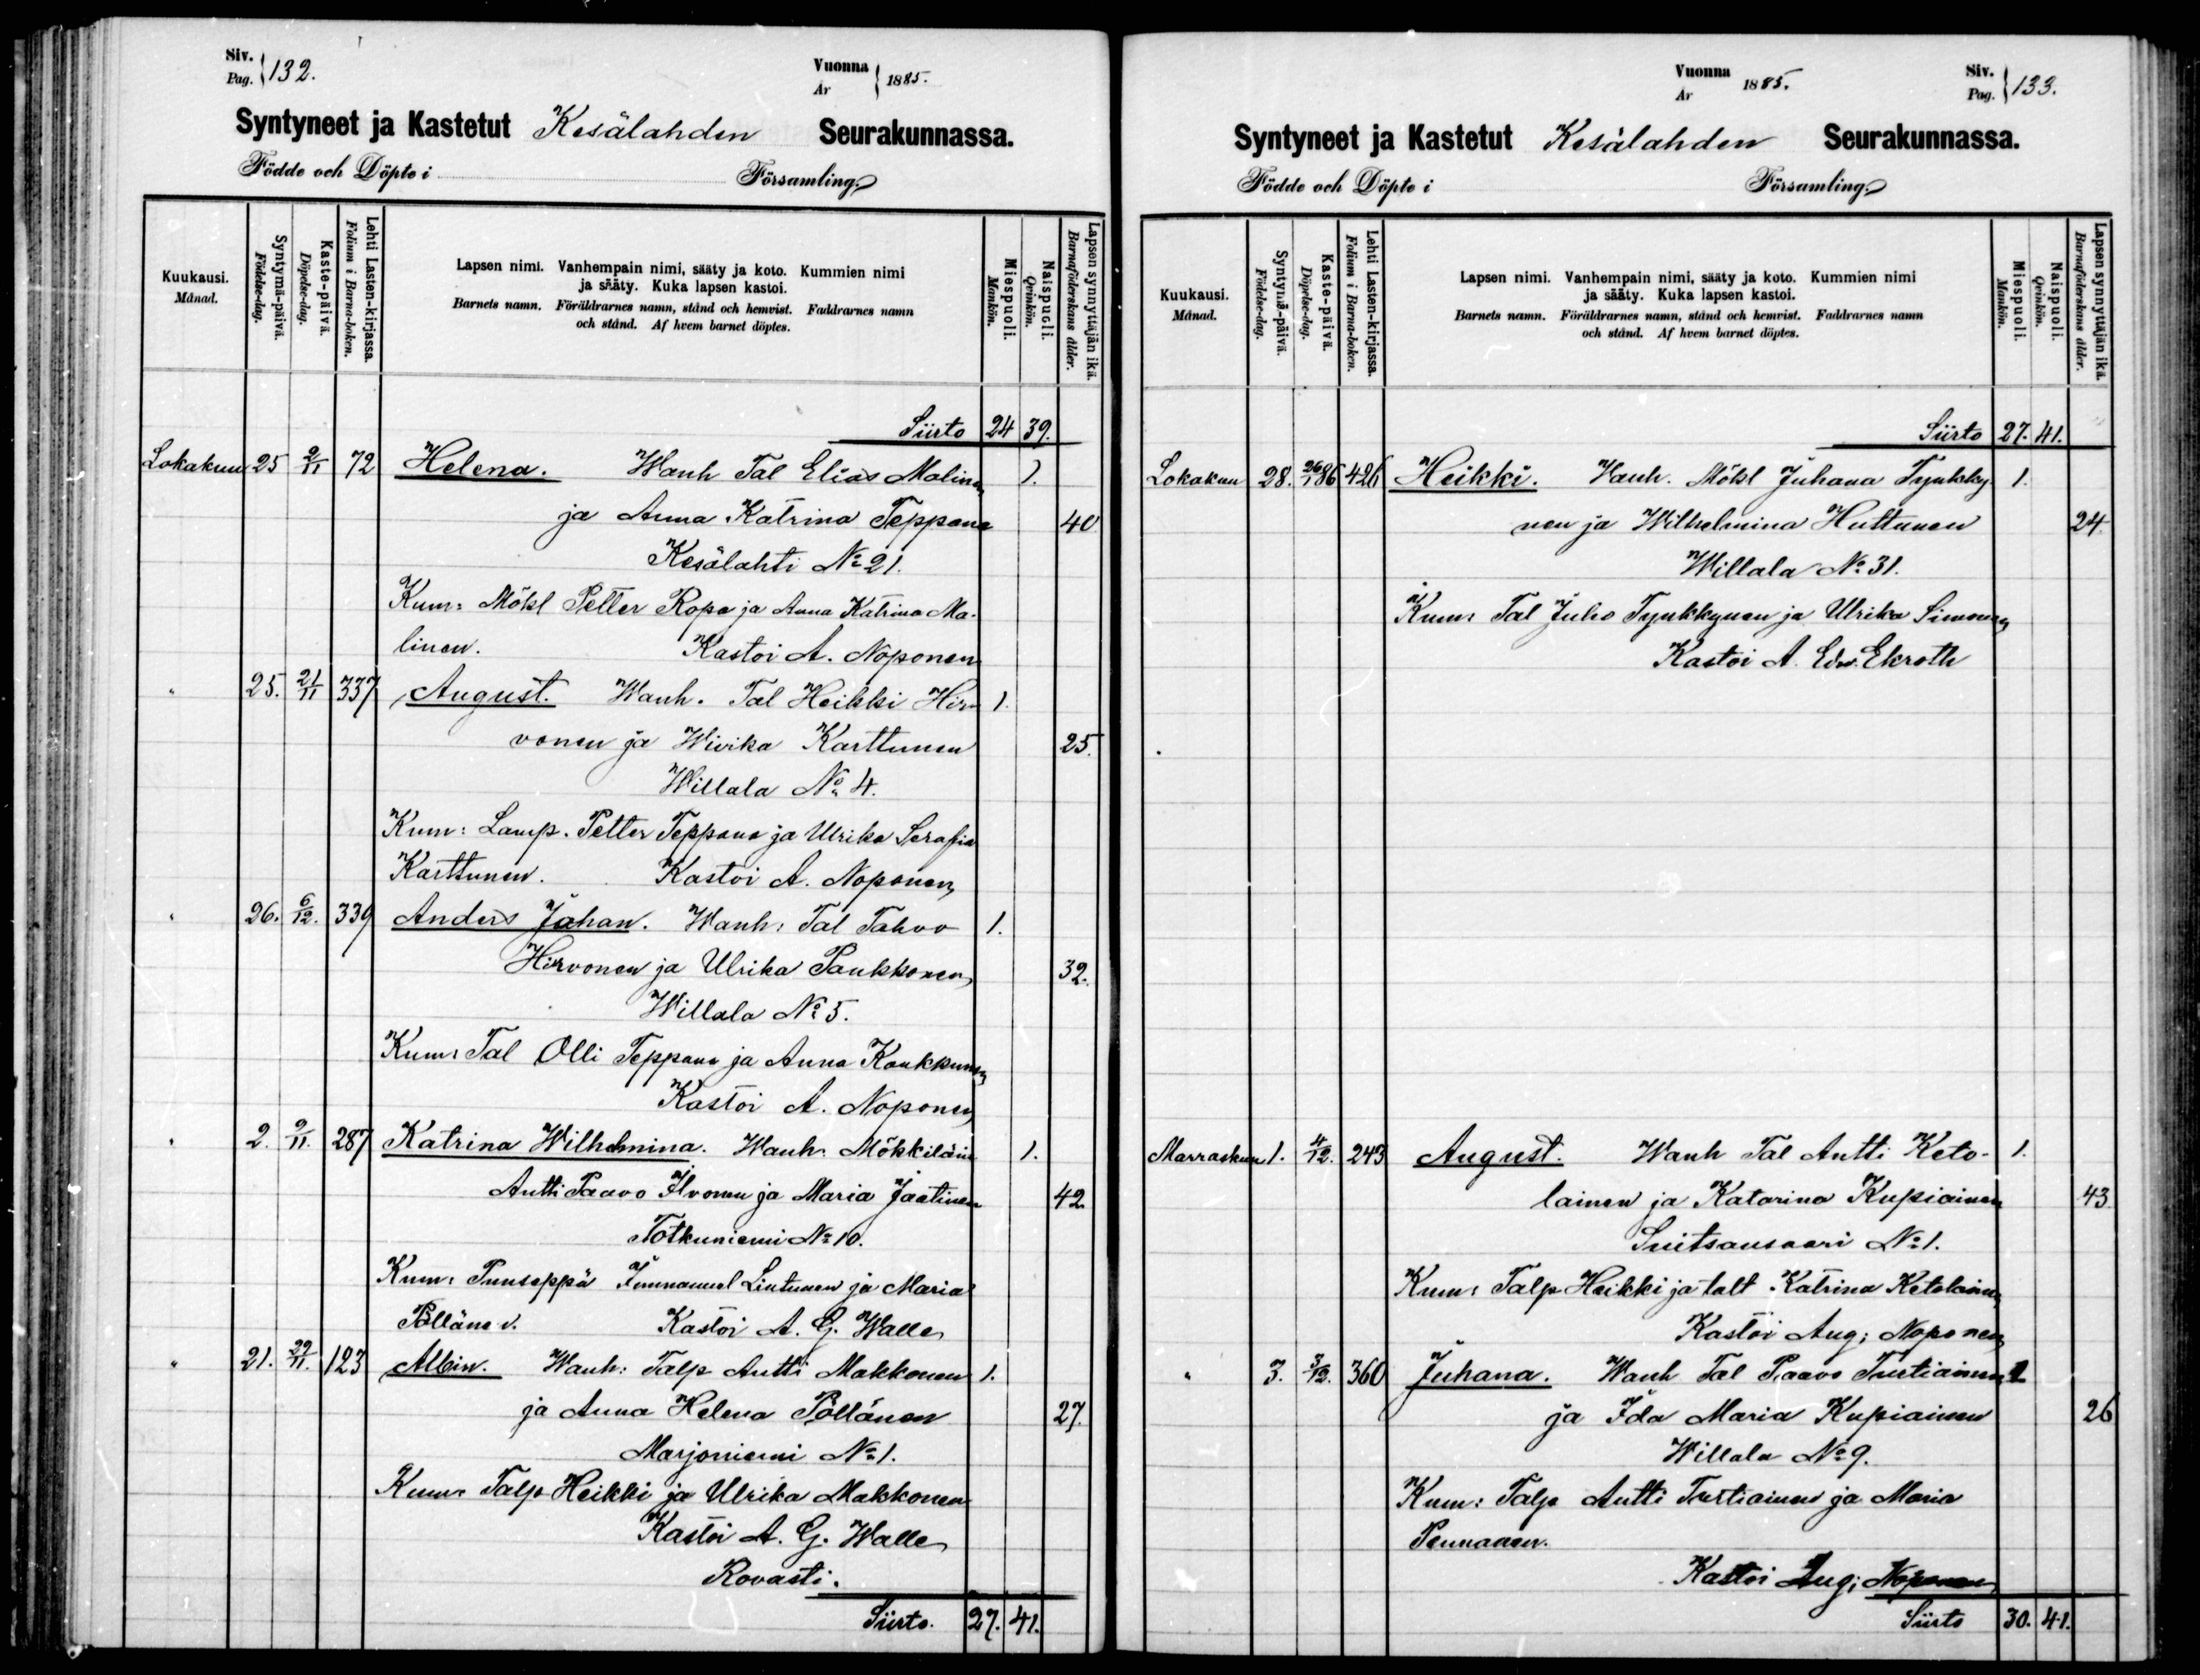 Siv. Pag. 132.
Vuonna År 1885.
Syntyneet ja Kastetut Kesälahden Seurakunnassa.
Födde och Döpte i Församling
Kuukausi. Månad.
Syntymä-päivä. Födelse-dag.
Kaste-päivä. Döpelse-dag.
Lehti Lasten-kirjassa. Folium i Barna-boken.
Lapsen nimi. Vanhempain nimi, sääty ja koto. Kummien nimi
ja sääty. Kuka lapsen kastoi.
Barnets namn. Föräldrarnes namn, stånd och hemvist. Faddrarnes namn
och stånd. Af hvem barnet döptes.
Miespuoli. Mankön.
Naispuoli. Qvinkön.
Lapsen synnyttäjän ikä. Barnaföderskans ålder.
Siirto 24 39.
Lokakuu 25 2/11 72 Helena. Wanh Tal Elias Malinen 1.
ja Anna Katrina Teppana 40
Kesälahti No 21.
Kum: Mökl Petter Ropo ja Anna Katrina Ma-
linen. Kastoi A. Noponen
" 25. 21/11 337 August. Wanh. Tal Heikki Hir- 1.
vonen ja Wivika Karttunen 25.
Willala No 4.
Kum: Lamp. Petter Teppana ja Ulrika Serafia
Karttunen. Kastoi A. Noponen
" 26. 6/12. 339 Anders Johan. Wanh: Tal Tahvo 1.
Hirvonen ja Ulrika Paukkonen 32.
Willala No 5.
Kum: Tal Olli Teppana ja Anna Kaukkunen
Kastoi A. Noponen
" 2. 9/11. 287 Katrina Wilhelmina. Wanh. Mökkiläin 1.
Antti Paavo Ilvonen ja Maria Jaatinen 42
Totkuniemi No 10.
Kum: Puuseppä Immanuel Lintunen ja Maria
Pöllänen. Kastoi A. G. Walle
" 21. 29/11. 123 Albin. Wanh: Talp Antti Makkonen 1.
ja Anna Helena Pöllänen 27.
Marjoniemi No 1.
Kum: Talp Heikki ja Ulrika Makkonen
Kastoi A. G. Walle
Rovasti.
Siirto. 27. 41.
Vuonna År 1885.
Siv. Pag. 133.
Syntyneet ja Kastetut Kesälahden Seurakunnassa.
Födde och Döpte i Församling
Kuukausi. Månad.
Syntymä-päivä. Födelse-dag.
Kaste-päivä. Döpelse-dag.
Lehti Lasten-kirjassa. Folium i Barna-boken.
Lapsen nimi. Vanhempain nimi, sääty ja koto. Kummien nimi
ja sääty. Kuka lapsen kastoi.
Barnets namn. Föräldrarnes namn, stånd och hemvist. Faddrarnes namn
och stånd. Af hvem barnet döptes.
Miespuoli. Mankön.
Naispuoli. Qvinkön.
Lapsen synnyttäjän ikä. Barnaföderskans ålder.
Siirto 27. 41.
Lokakuu 28. 26/1 86 426 Heikki. Wanh. Mökl Juhana Tynkky- 1.
nen ja Wilhelmina Huttunen 24.
Willala No 31.
Kum: Tal Juho Tynkkynen ja Ulrika Simonen
Kastoi A. Edw. Ekroth
Marraskuu 1. 4/12. 243 August. Wanh Tal Antti Keto- 1.
lainen ja Katarina Kupiainen 43
Suitsansaari No 1.
Kum: Talp Heikki ja talt Katrina Ketolainen
Kastoi Aug; Noponen
" 3. 3/12. 360 Juhana. Wanh Tal Paavo Turtiainen 1
ja Ida Maria Kupiainen 26
Willala No 9.
Kum: Talp Antti Turtiainen ja Maria
Pennanen.
Kastoi Aug; Noponen
Siirto 30. 41.